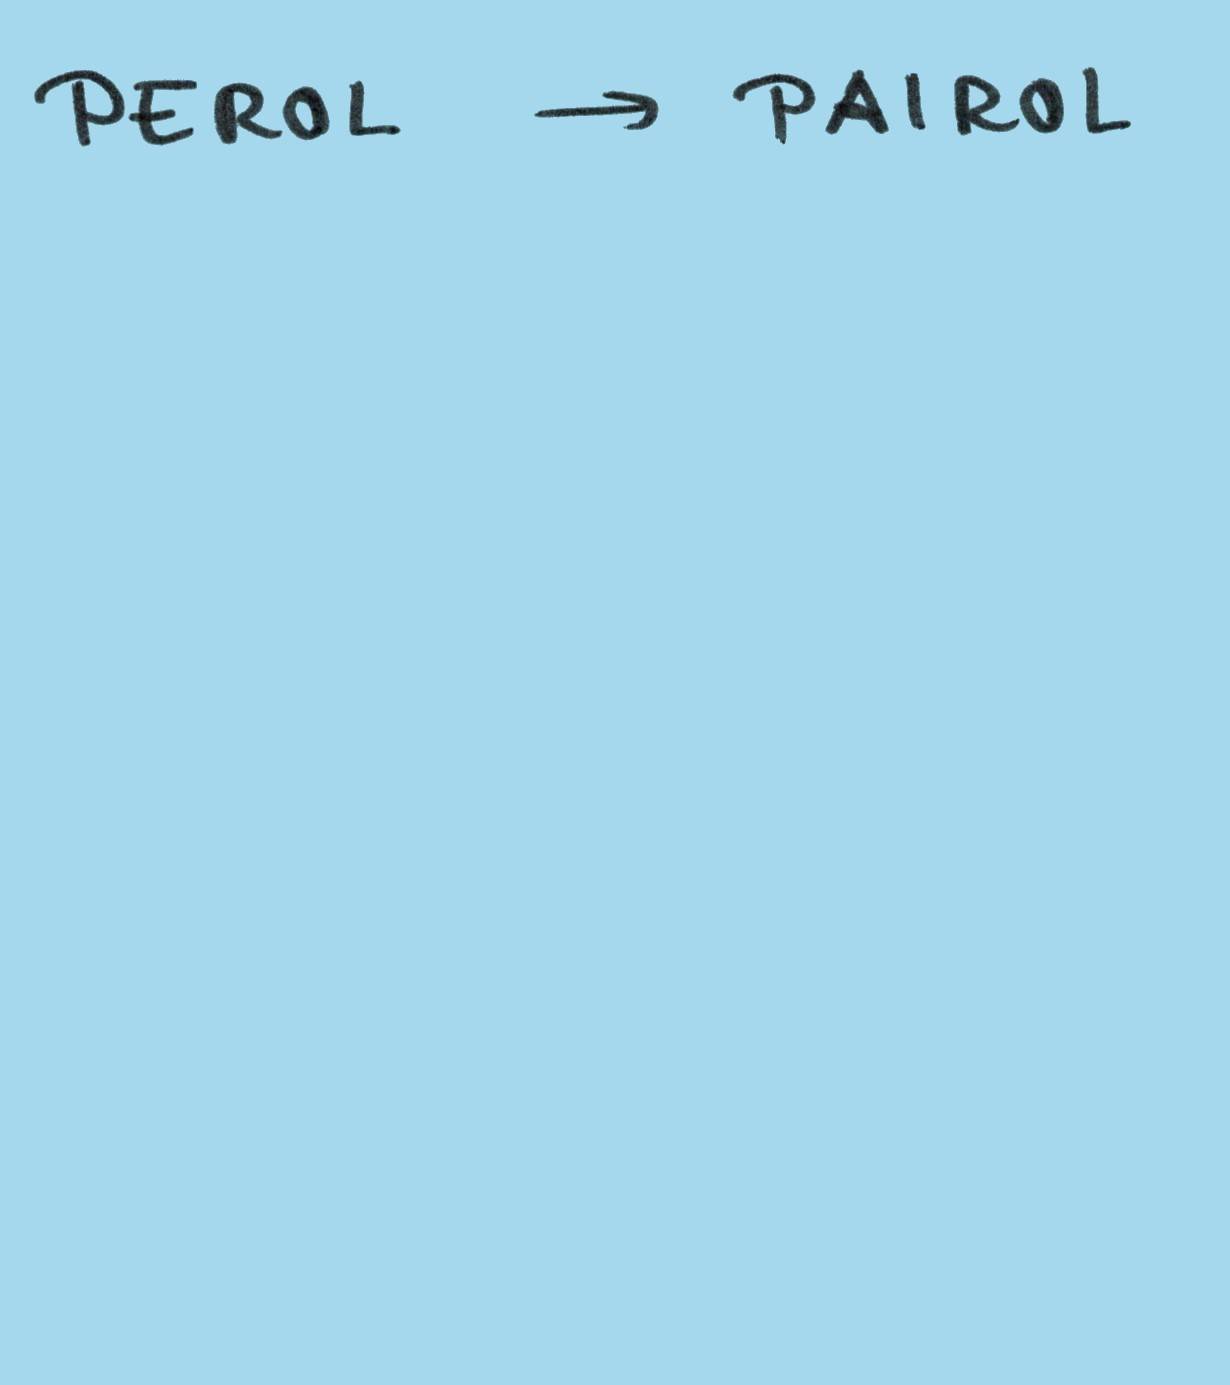 PEROL → PAIROL